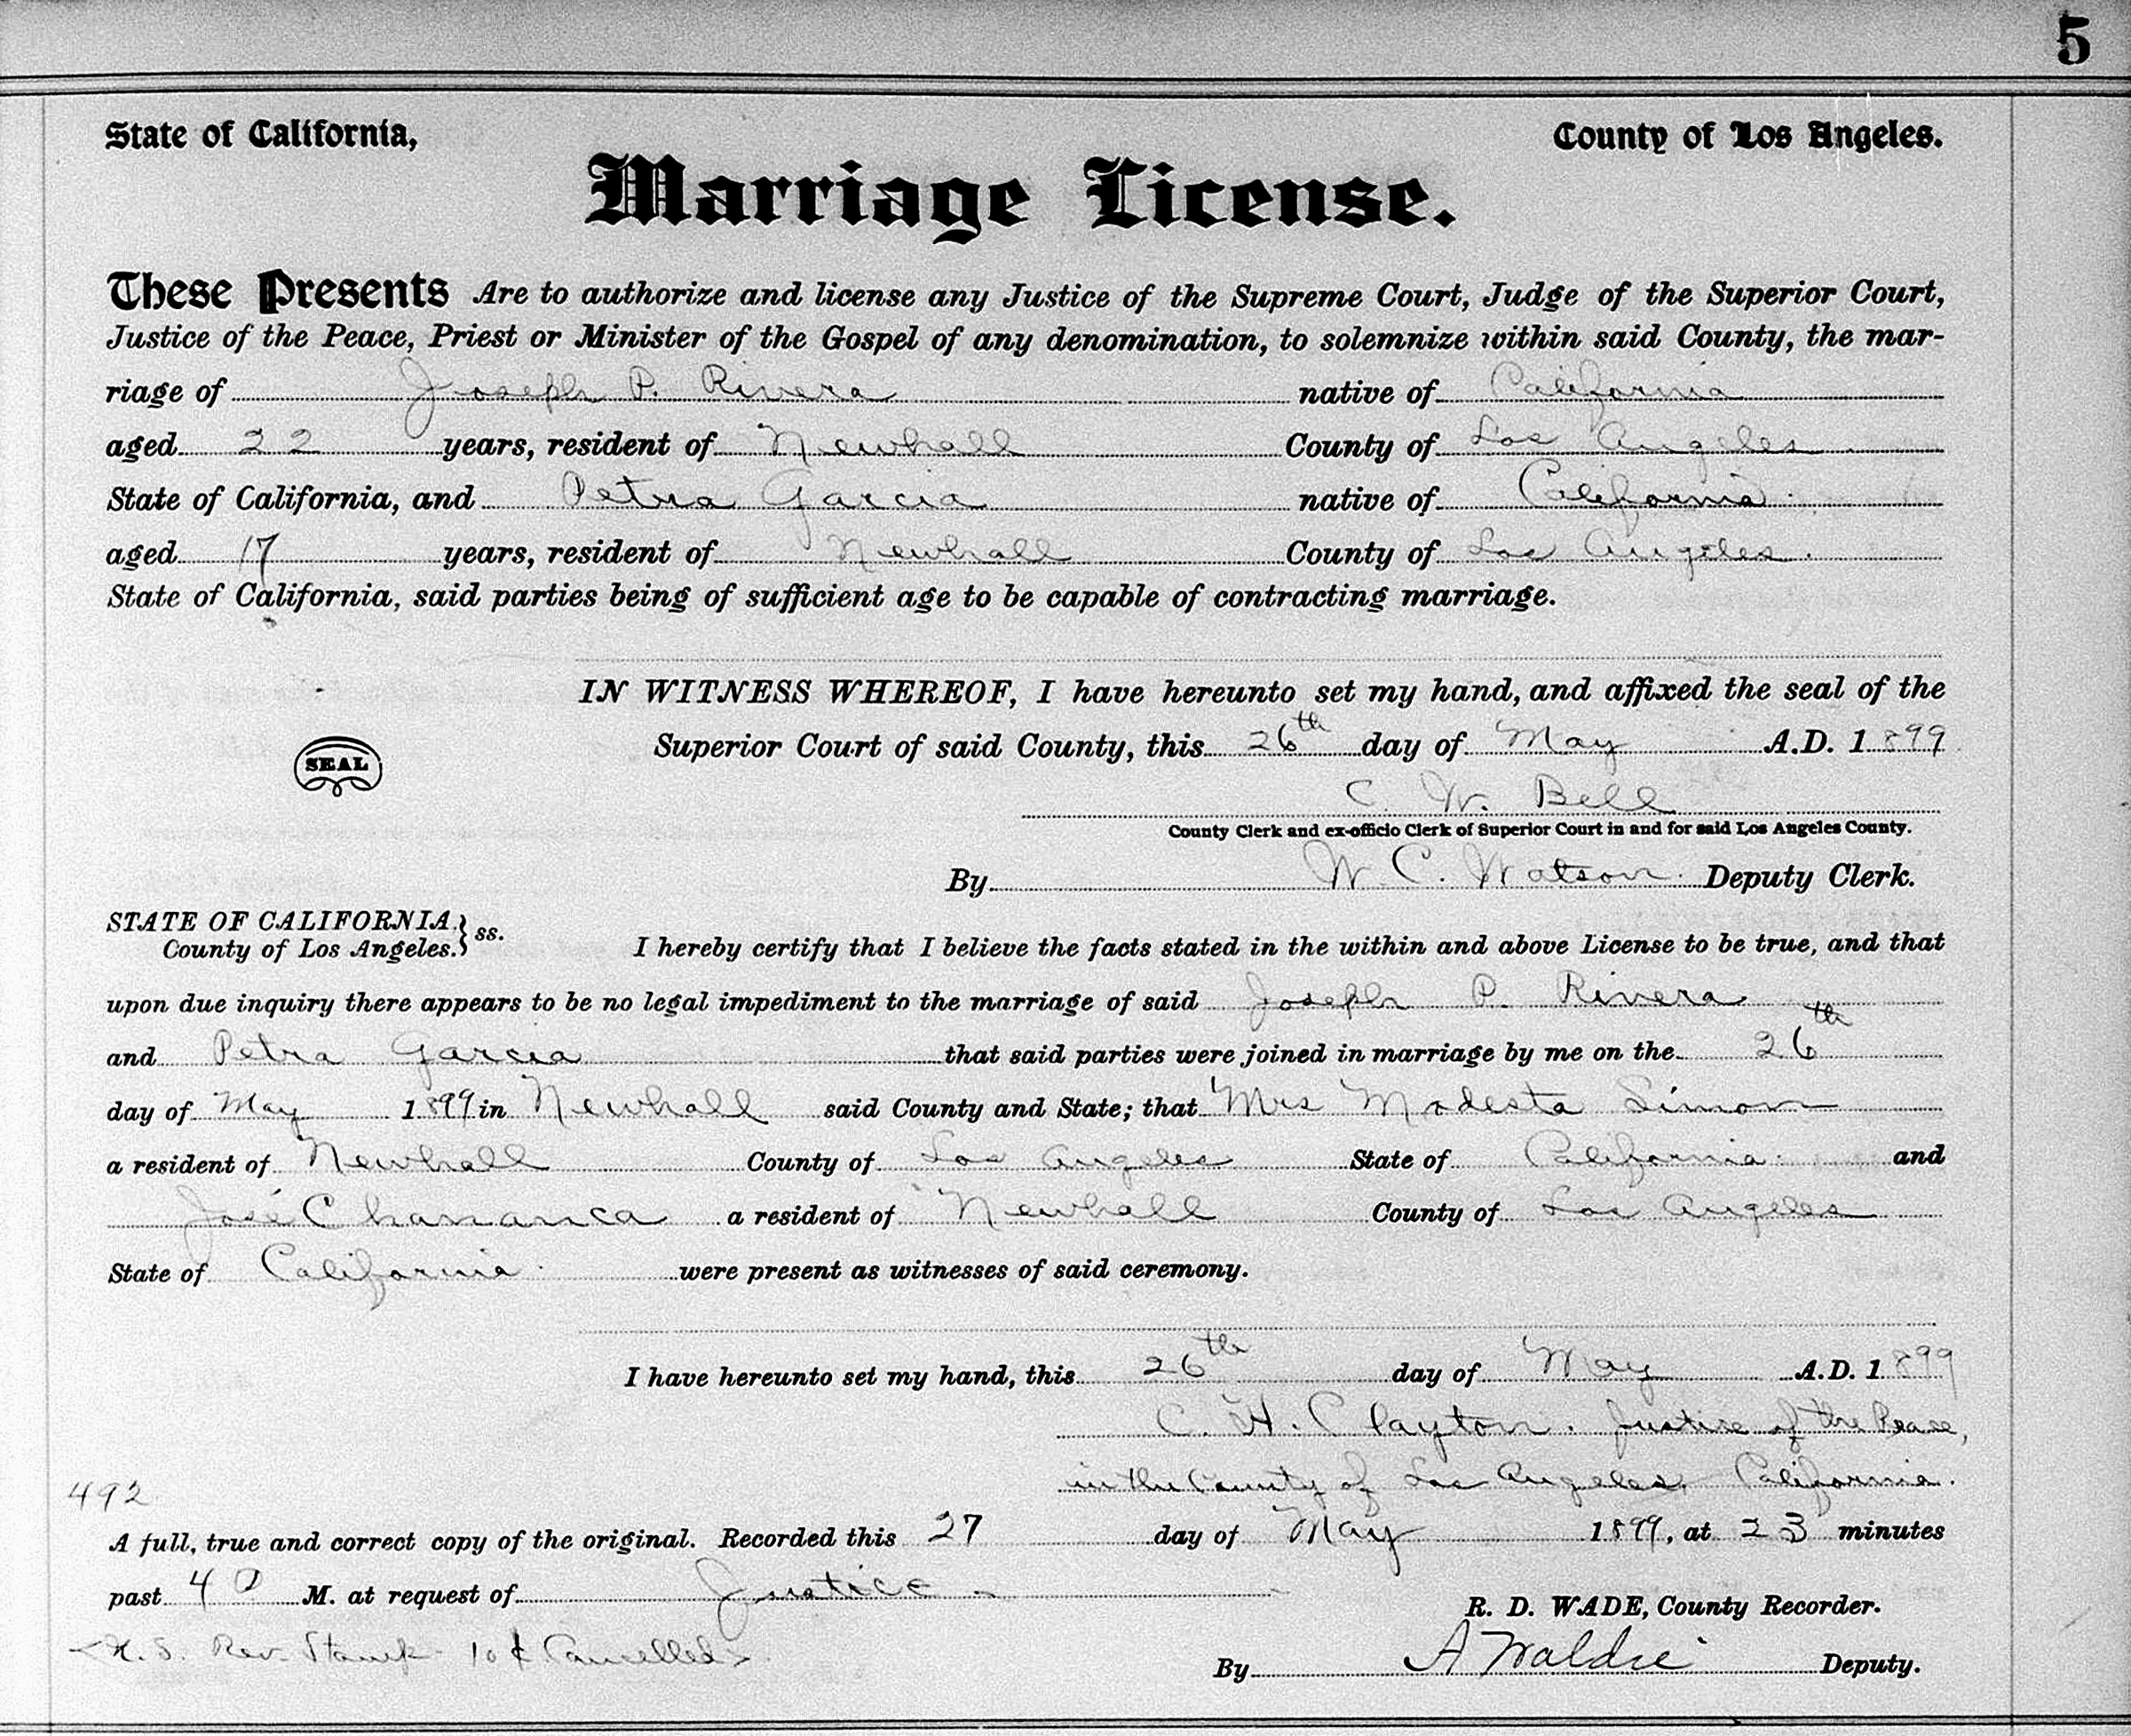 5
State of California, County of Los Angeles.
Marriage License.
These Presents Are to authorize and license any Justice of the Supreme Court, Judge of the Superior Court,
Justice of the Peace, Priest or Minister of the Gospel of any denomination, to solemnize within said County, the mar-
riage of Joseph P. Rivera native of California
aged 22 years, resident of Newhall County of Los Angeles
State of California, and Petra Garcia native of California
aged 17 years, resident of Newhall County of Los Angeles.
State of California, said parties being of sufficient age to be capable of contracting marriage.
IN WITNESS WHEREOF, I have hereunto set my hand, and affixed the seal of the
SEAL Superior Court of said County, this 26th day of May A.D. 1899
C. W. Bell
County Clerk and ex-officio Clerk of Superior Court in and for said Los Angeles County.
By W. C. Watson. Deputy Clerk.
STATE OF CALIFORNIA.
County of Los Angeles. } ss. I hereby certify that I believe the facts stated in the within and above License to be true, and that
upon due inquiry there appears to be no legal impediment to the marriage of said Joseph P. Rivera
and Petra Garcia that said parties were joined in marriage by me on the 26th
day of May 1899 in Newhall said County and State; that Mrs Modesta Simon
a resident of Newhall County of Los Angeles State of California and
José a resident of Newhall County of Los Angeles
State of California were present as witnesses of said ceremony.
I have hereunto set my hand, this 26th day of May A.D. 1899
C. H. Clayton. Justice of the Peace,
in the County of Los Angeles, California.
492
A full, true and correct copy of the original. Recorded this 27 day of May 1899, at 23 minutes
past 4 P M. at request of Justice
R. D. WADE, County Recorder.
U. S. Rev. Stamp 10¢ Cancelled
By A Waldie Deputy.